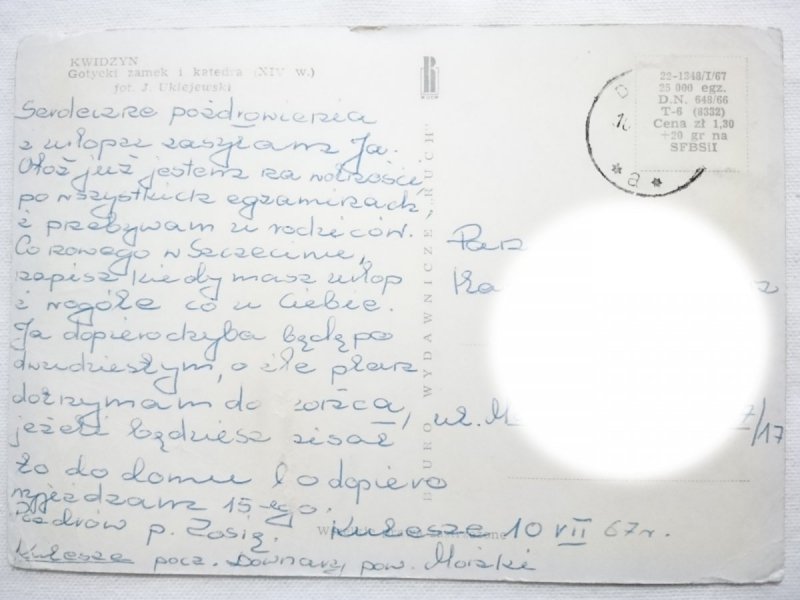 KWIDZYN
Gotycki zamek i katedra (XIV w.)
fot. J. Uklejewski
Serdeczne pozdrowienia
z urlopu zasyłam Ja.
Otóż już jestem na wolności
po wszystkich egzaminach
i przebywam u rodziców.
Co nowego w Szczecinie,
napisz kiedy masz urlop
i wogóle co u Ciebie.
Ja dopiero chyba będę po
dwudziestym, o ile plan
dotrzymam do końca,
jeżeli będziesz pisał
to do domu bo dopiero
wyjeżdżam 15-ego.
Pozdrów p. Zosię.
Kulesze 10 VII 67r.
Kulesze pocz. Downary pow. Mońki
BIURO WYDAWNICZE „RUCH”
RUCH
22-1348/I/67
25 000 egz.
D.N. 648/66
T-6 (8332)
Cena zł 1,30
+20 gr na
SFBSiI
a
Pan
Ka
ul. M
7/17